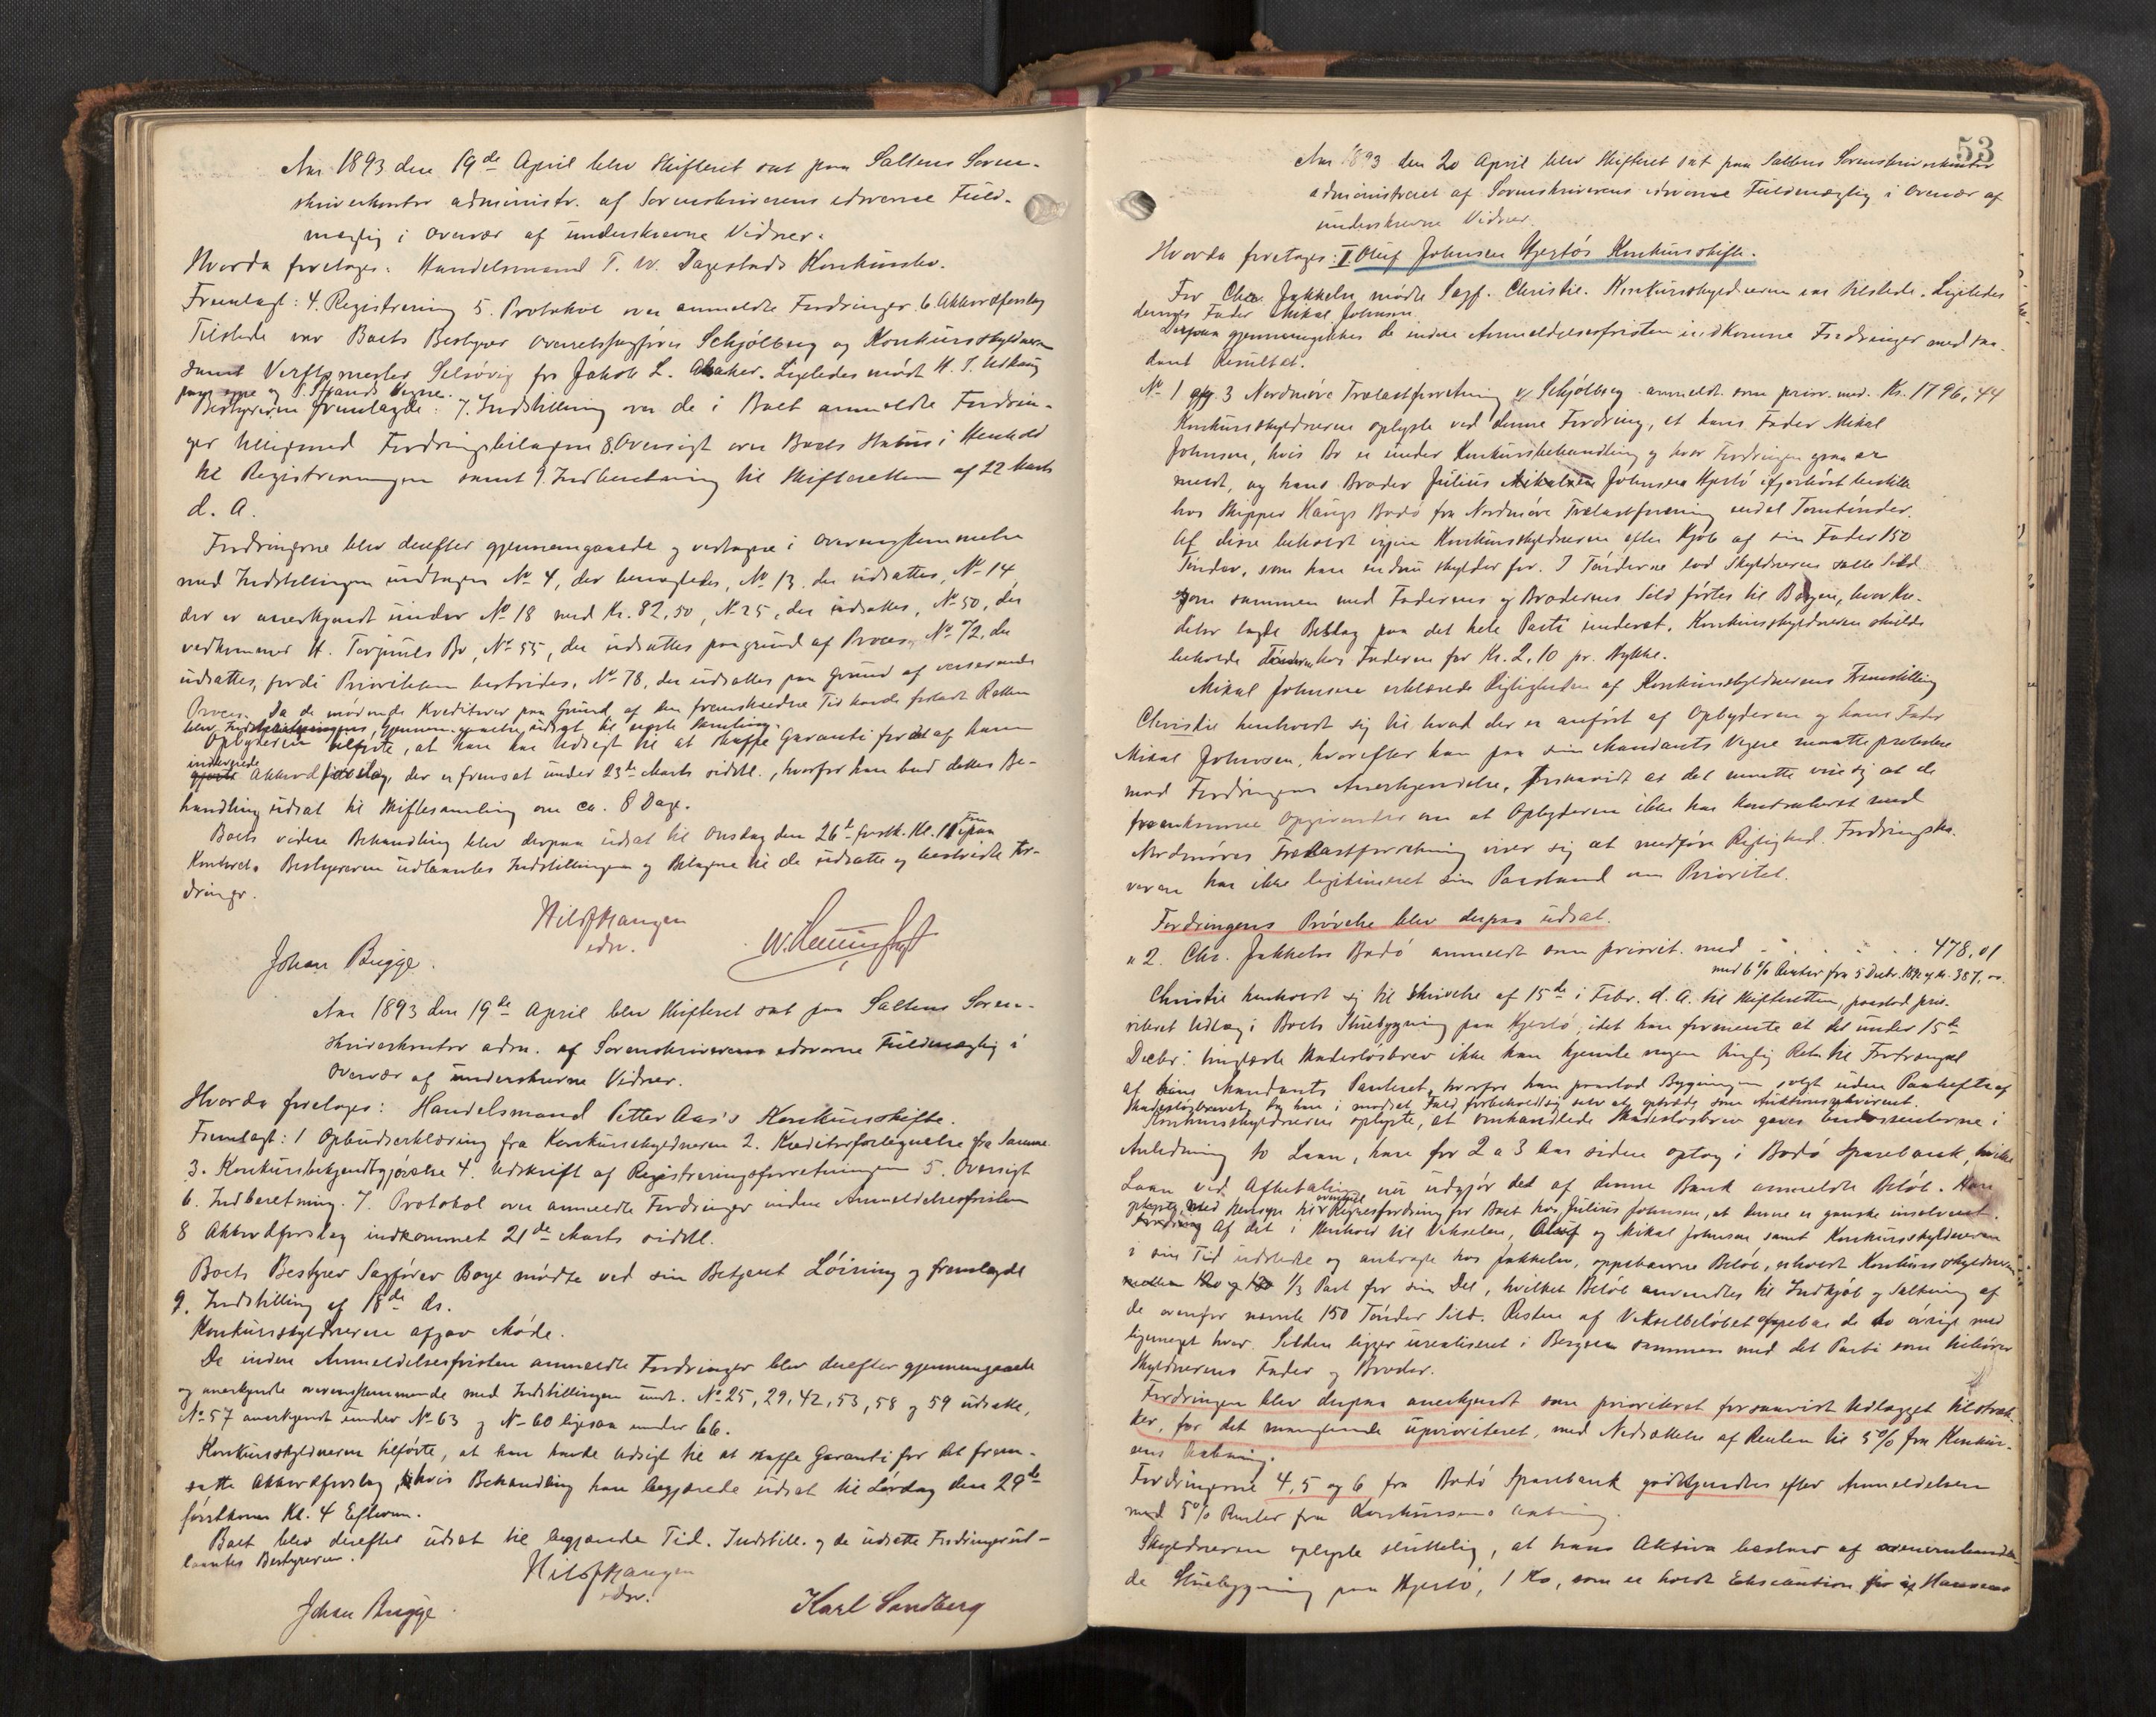 Aar 1893 den 19de April blev Skifteret sat paa Saltens Soren-
skriverkontor administr. af Sorenskriverens edsvorne Fuld-
mægtig i Overvær af underskrevne Vidner.
Hvorda foretoges: Handelsmand T. W. Dagestads Konkursbo.
Fremlagt: 4. Registrering 5. Protokol over anmeldte Fordringer 6. Akkordforslag
Tilstede var Boets Bestyrer Overretssagfører Schjølberg og Konkursskyldneren
samt Verftsmester Selsøvig for Jakob L.          Ligeledes mødt H. J.
paa egne og          Vegne.
Bestyreren fremlagde: 7. Indstilling over de i Boet anmeldte Fordrin-
ger tilligemed Fordringsbilagene 8. Oversigt over Boets Status i Henhold
til Registreringen samt 9. Indberetning til Skifteretten af 22 Marts
d. A.
Fordringerne blev derefter gjennemgaaede og vedtagne i Overensstemmelse
med Indstillingen undtagen No 4, der benegtedes, No 13, der udsattes, No 14
der er anerkjendt under No 18 med Kr. 82,50, No 25, der udsattes, No 50, der
vedkommer H.          Bo, No 55, der udsattes paa grund af Proces, No 72, der
udsattes, fordi Prioriteten bestrides, No 78, der udsattes paa Grund af verserende
Proces. Da de mødende Kreditorer paa Grund af den fremskredne Tid havde forladt Retten
blev Indstillingens Gjennemgaaelse udsat til næste Samling.
Opbyderen tilførte, at han har Udsigt til at skaffe Garanti for det af ham
indleverede
Akkordforslag, der er fremsat under 23de Marts sidstl., hvorfor han bad dettes Be-
handling udsat til Skiftesamling om ca. 8 Dage.
Boets videre Behandling blev derpaa udsat til Onsdag den 26de førstk. Kl. 11 Fm paa
Kontoret. Bestyreren udlaantes Indstillingen og Bilagene til de udsatte og bestridte For-
dringer.
Nils
edsv.
Johan Brygge.
Aar 1893 den 19de April blev Skifteret sat paa Saltens Soren-
skriverkontor adm. af Sorenskriverens edsvorne Fuldmægtig i
Overvær af underskrevne Vidner.
Hvorda foretoges: Handelsmand Petter Aas's Konkursskifte.
Fremlagt: 1 Opbudserklæring fra Konkursskyldneren 2. Kreditorfortegnelse fra Samme
3. Konkursbekjendtgjørelse 4. Udskrift af Registreringsforretningen 5. Oversigt
6. Indberetning. 7. Protokol over anmeldte Fordringer inden Anmeldelsesfristen
8 Akkordforslag indkommet 21de Marts sidstl.
Boets Bestyrer Sagfører Boye mødte ved sin Betjent Løining og fremlagde
9. Indstilling af 18de ds.
Konkursskyldneren afgav Møde.
De inden Anmeldelsesfristen anmeldte Fordringer blev derefter gjennemgaaede
og anerkjendte overensstemmende med Indstillingen undt. No 25, 29, 42, 53, 58 og 59 udsatte,
No 57 anerkjendt under No 63 og No 60 ligesaa under 66.
Konkursskyldneren tilførte, at han havde Udsigt til at skaffe Garanti for det frem-
satte Akkordforslag, hvis Behandling han begjærede udsat til Lørdag den 29de
førstkom. Kl. 4 Efterm.
Boet blev derefter udsat til begjærede Tid. Indstill. og de udsatte Fordringer ud-
laantes Bestyreren.
Nils
edsv.
Johan Brygge.
Karl Sandberg
53
Aar 1893 den 20 April blev Skifteret sat paa Saltens Sorenskriverkontor
administreret af Sorenskriverens edsvorne Fuldmægtig i Overvær af
underskrevne Vidner.
Hvorda foretoges: I Oluf Johnsen Hjertøs Konkursskifte.
For Chr. Jakhelln mødte Sagf. Christie. Konkursskyldneren var tilstede. Ligeledes
dennes Fader Mikal Johnsen.
Derpaa gjennemgikkes de inden Anmeldelsesfristen indkomne Fordringer med saa-
dant Resultat.
No 1 og 3 Nordmøre Trælastforretning v/ Schjølberg anmeldt som prior. med Kr. 1796,44
Konkursskyldneren oplyste ved denne Fordring, at hans Fader Mikal
Johnsen, hvis Bo er under Konkursbehandling og hvor Fordringen ogsaa er an-
meldt, og hans Broder Julius Johnsen Hjertø ifjorhøst bestilte
hos Skipper Haugs Bodø fra Nordmøre Trælastforretning endel Tomtønder.
Af disse beholdt igjen Konkursskyldneren efter Kjøb af sin Fader 150
Tønder, som han endnu skylder for. I Tønderne lod Skyldneren salte Sild
som sammen med Faderens og Broderens Sild førtes til Bergen, hvor Kre-
ditor lagde Beslag paa det hele Parti underet. Konkursskyldneren skulde
beholde Tønderne hos Faderen for Kr. 2,10 pr. Stykke.
Mikal Johnsen erklærede Rigtigheden af Konkursskyldnerens Fremstilling
Christie henholdt sig til hvad der er anført af Opbyderen og hans Fader
Mikal Johnsen, hvorefter han paa sin Mandants Vegne maatte protestere
mod Fordringens Anerkjendelse, forsaavidt at det maatte vise sig at de
fremkomne Opgivender om at Opbyderen ikke har kontraheret med
Nordmøres Trælastforretning viser sig at medføre Rigtighed. Fordringsha-
veren har ikke legitimeret sin Paastand om Prioritet.
Fordringens Prøvelse blev derpaa udsat.
" 2. Chr. Jakhelln Bodø anmeldt som priorit. med - - - - 478,01
med 6% Renter fra 5 Decbr. 1892 af Kr. 387,00.
Christie henholdt sig til Skrivelse af 15de i Febr. d. A. til Skifteretten, paastod prio-
riteret Udlæg i Boets Stuebygning paa Hjertø, idet han formente at det under 15de
Decbr. tinglæste Skadesløsbrev ikke kan hjemle nogen tinglig Ret til Fortrængsel
af hans Mandants Panteret, hvorfor han paastod Bygningen solgt uden Panthefte af
Skadesløsbrevet, og han i modsat Fald forbeholdt sig selv at optræde som Auktionsrekvirent.
Konkursskyldneren oplyste, at omhandlede Skadesløsbrev gaves Endossenterne i
Anledning to Laan, han for 2 a 3 Aar siden optog i Bodø Sparebank, hvilke
Laan ved Afbetaling nu udgjør det af denne Bank anmeldte Beløb. Han
oplyste med Hensyn til Regresfordring for Boet hos Julius Johnsen, at denne er ganske insolvent.
Af det i Henhold til Vekselen, Oluf og Mikal Johnsen samt Konkursskyldneren
i sin Tid udstedte og anbragte hos Jakhelln, oppebaarne Beløb, erholdt Konkursskyldneren
1/3 Part for sin Del, hvilket Beløb anvendtes til Indkjøb og Saltning af
de ovenfor nævnte 150 Tønder Sild. Resten af Vekselbeløbet oppebar de to øvrige med
ligemeget hver. Silden ligger urealiseret i Bergen sammen med det Parti som tilhører
Skyldnerens Fader og Broder.
Fordringen blev derpaa anerkjendt som prioriteret forsaavidt Udlægget tilstræk-
ker, for det manglende uprioriteret, med Nedsættelse af Renten til 5% fra Konkur-
sens Aabning.
Fordringerne 4, 5 og 6 fra Bodø Sparebank godkjendtes efter Anmeldelsen
med 5% Renter fra Konkursens Aabning.
Skyldneren oplyste sluttelig, at hans Aktiva bestaar af ovenomhandle-
de Stuebygning paa Hjertø, 1 Ko, som er holdt Eksekution for af Hansens